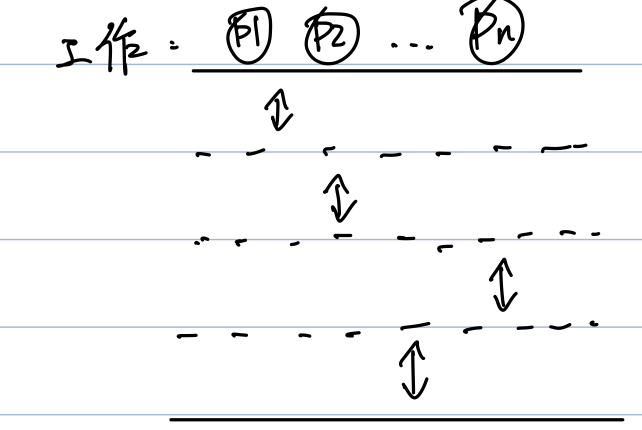 工作： P1 P2 ... Pn